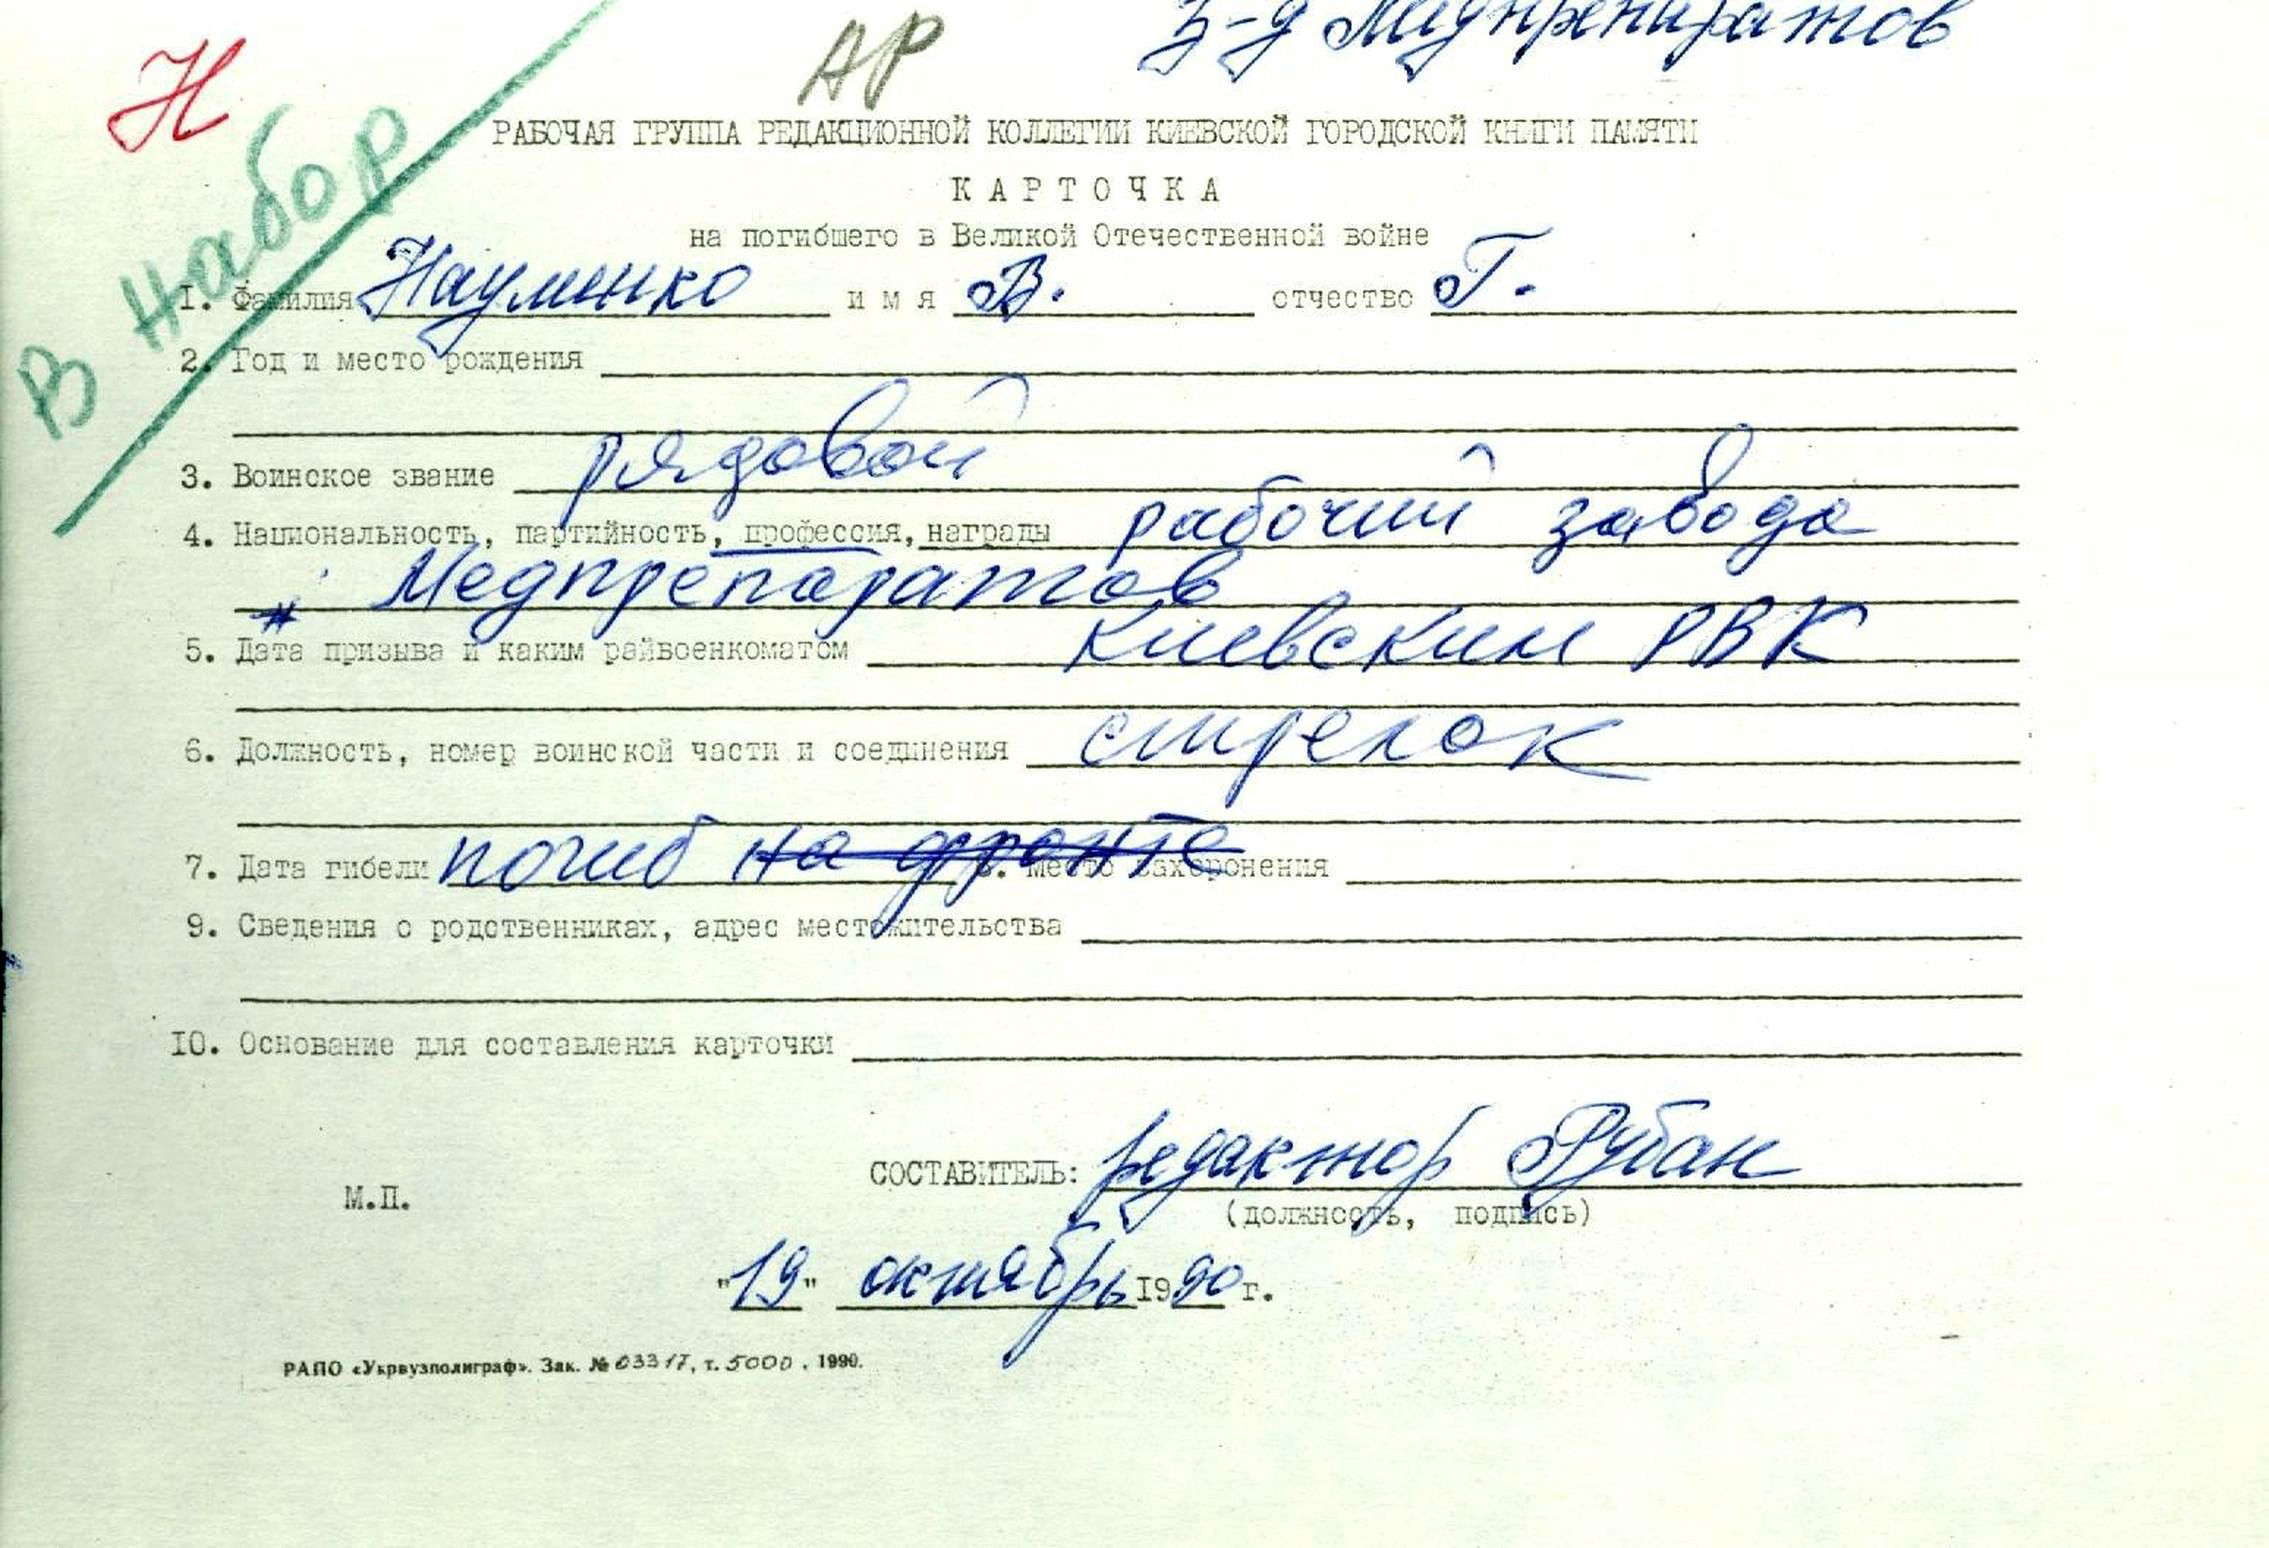 з-д Медпрепаратов
Н
АР
В набор
РАБОЧАЯ ГРУППА РЕДАКЦИОННОЙ КОЛЛЕГИИ КИЕВСКОЙ ГОРОДСКОЙ КНИГИ ПАМЯТИ
КАРТОЧКА
на погибшего в Великой Отечественной войне
1. Фамилия Науменко имя В. отчество Г.
2. Год и место рождения
3. Воинское звание рядовой
4. Национальность, партийность, профессия, награды рабочий завода
Медпрепаратов
5. Дата призыва и каким райвоенкоматом Киевским РВК
6. Должность, номер воинской части и соединения стрелок
7. Дата гибели погиб на фронте 8. Место захоронения
9. Сведения о родственниках, адрес местожительства
10. Основание для составления карточки
СОСТАВИТЕЛЬ: редактор Рубан
М.П.
(должность, подпись)
"19" октябрь 1990 г.
РАПО «Укрвузполиграф». Зак. № 03317, т. 5000. 1990.